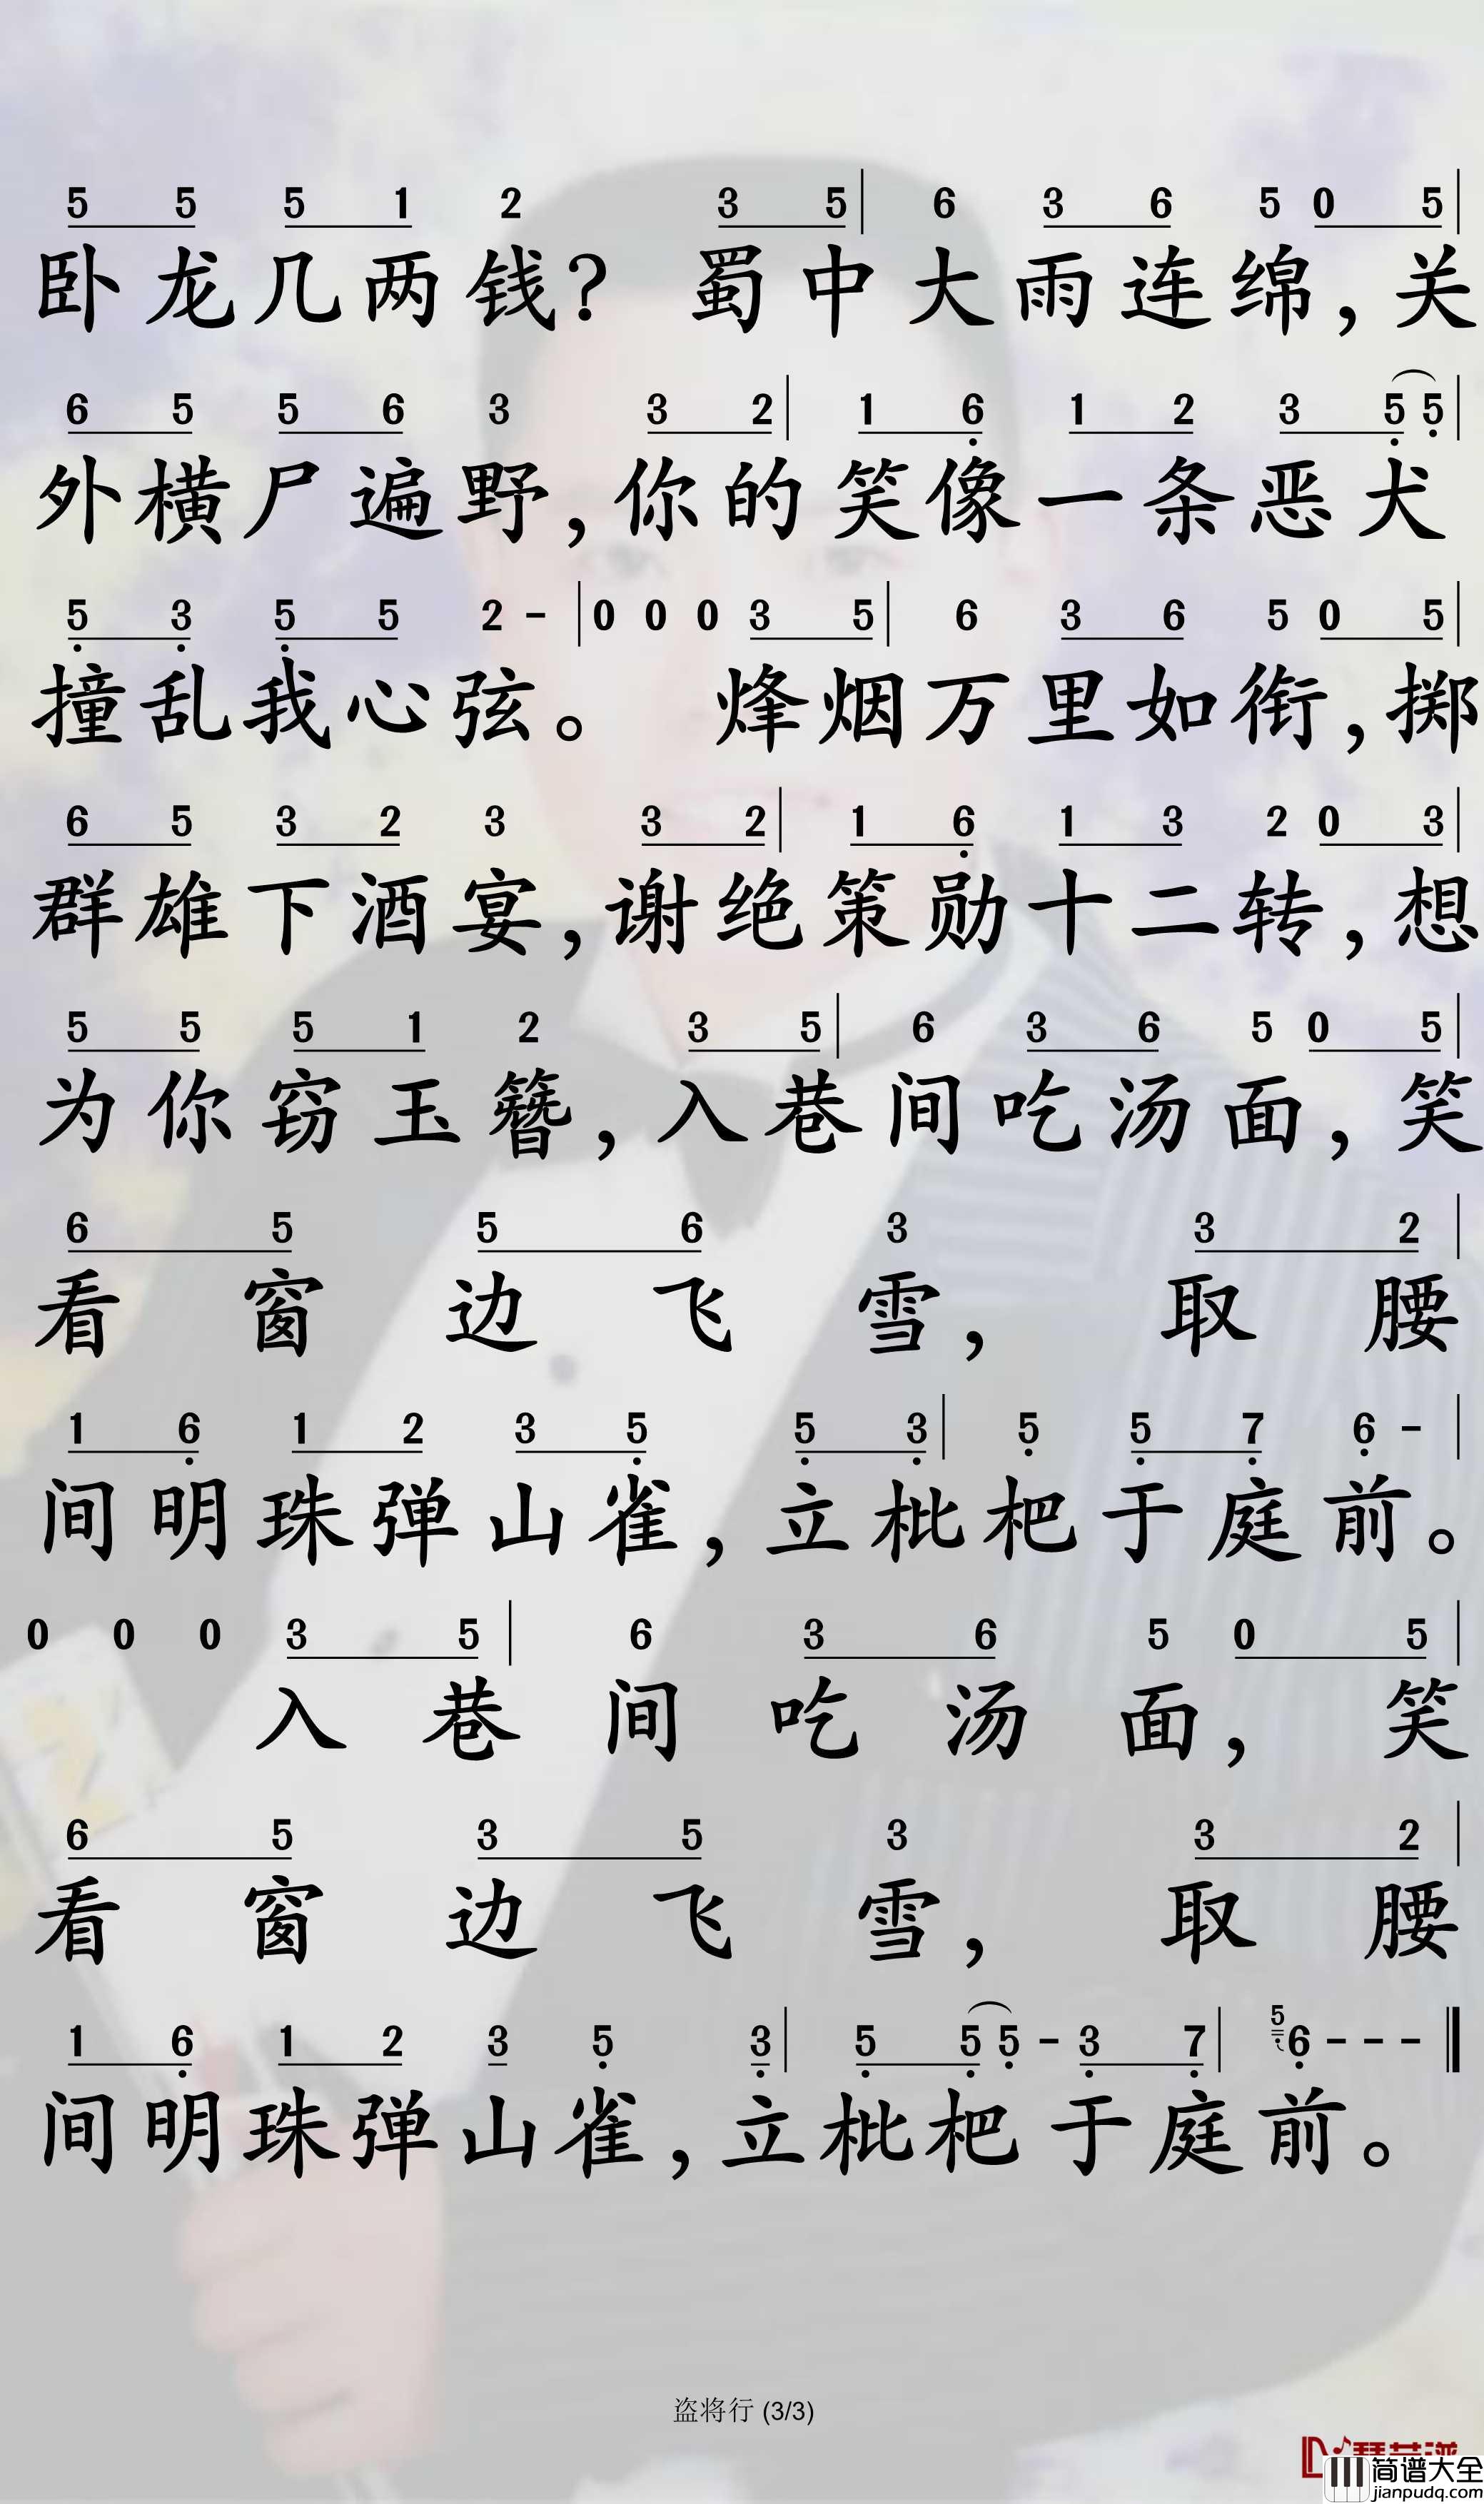 5 5 5 1 2 3 5 | 6 3 6 5 0 5 |
卧龙几两钱？ 蜀中大雨连绵，关
6 5 5 6 3 3 2 | 1 6 1 2 3 5 5 |
外横尸遍野，你的笑像一条恶犬
5 3 5 5 2 - | 0 0 0 3 5 | 6 3 6 5 0 5 |
撞乱我心弦。 烽烟万里如衔，掷
6 5 3 2 3 3 2 | 1 6 1 3 2 0 3 |
群雄下酒宴，谢绝策勋十二转，想
5 5 5 1 2 3 5 | 6 3 6 5 0 5 |
为你窃玉簪，入巷间吃汤面，笑
6 5 5 6 3 3 2 |
看窗边飞雪，取腰
1 6 1 2 3 5 5 3 | 5 5 7 6 - |
间明珠弹山雀，立枇杷于庭前。
0 0 0 3 5 | 6 3 6 5 0 5 |
入巷间吃汤面，笑
6 5 3 5 3 3 2 |
看窗边飞雪，取腰
1 6 1 2 3 5 3 | 5 5 5 - 3 7 | 5 6 - - - ‖
间明珠弹山雀，立枇杷于庭前。
盗将行 (3/3)
简谱大全
jianpudq.com